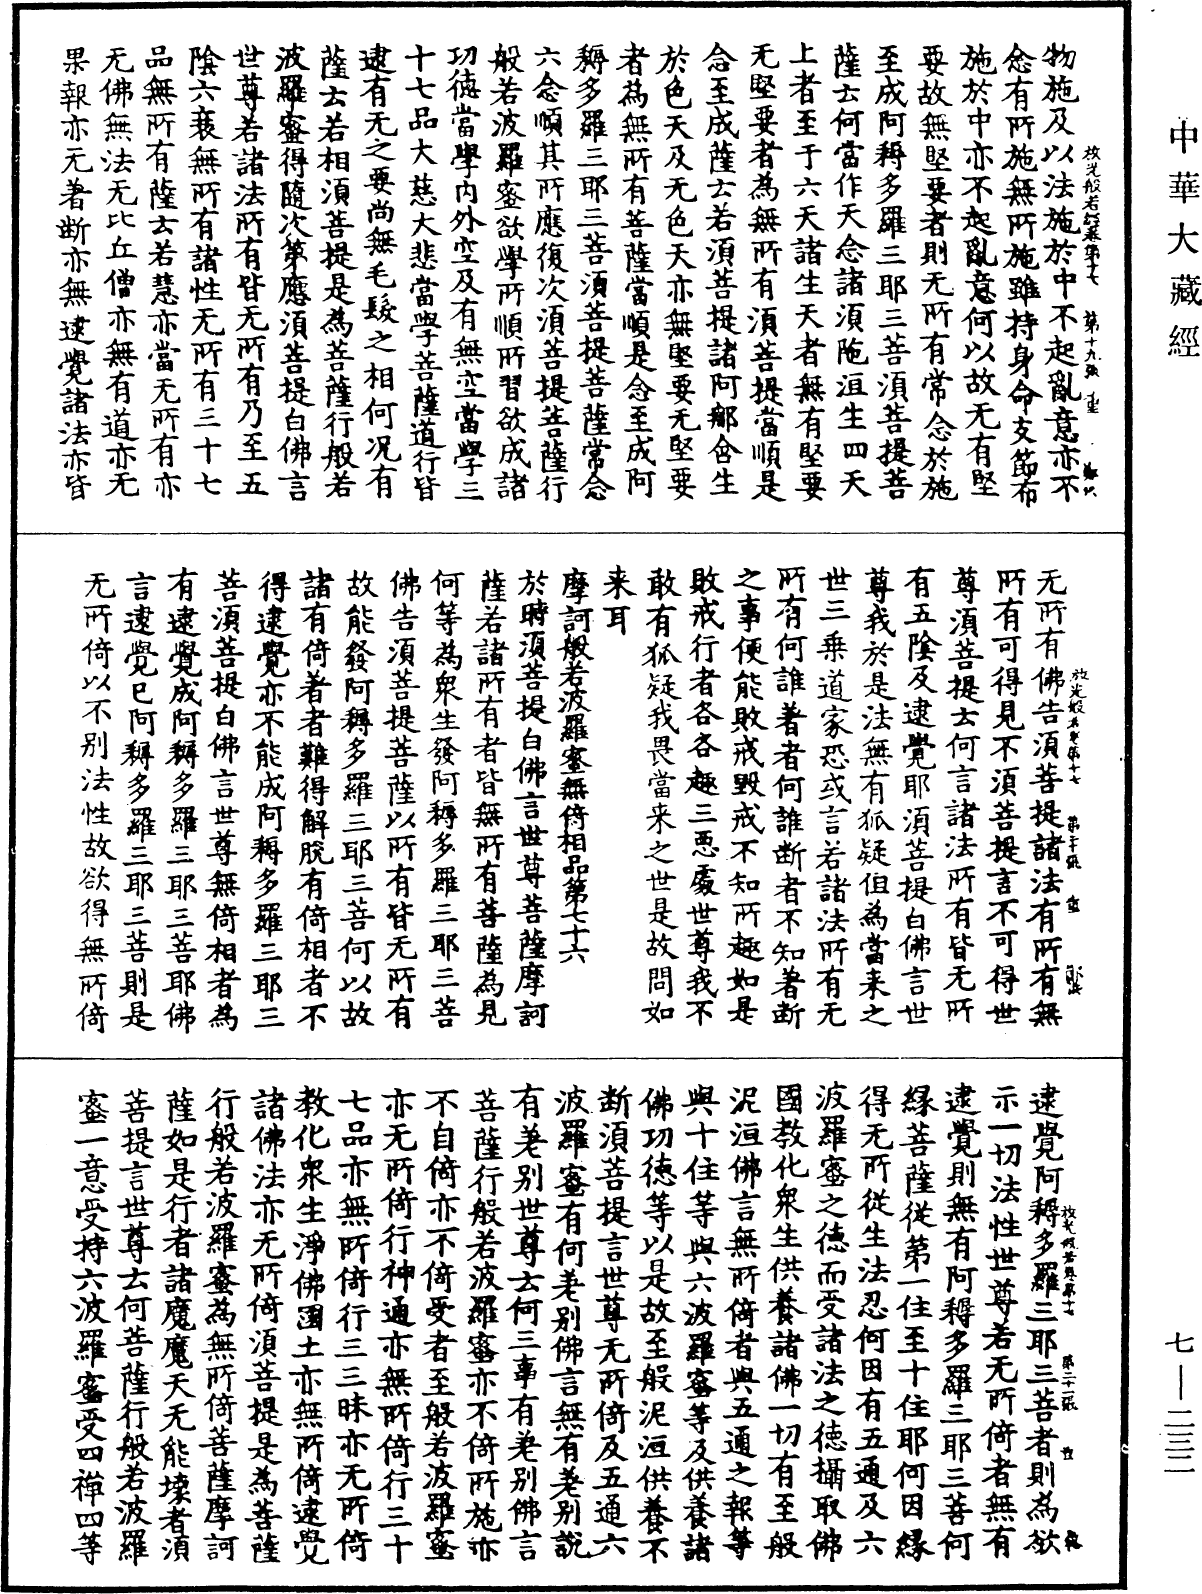 中華大藏經
七—二三二
放光般若經卷第十七 第十九張
物施及以法施於中不起亂意亦不
念有所施無所施雖持身命支節布
施於中亦不起亂意何以故无有堅
要故無堅要者則无所有常念於施
至成阿耨多羅三耶三菩須菩提菩
薩云何當作天念諸須陁洹生四天
上者至于六天諸生天者無有堅要
无堅要者為無所有須菩提當順是
念至成薩云若須菩提諸阿那含生
於色天及无色天亦無堅要无堅要
者為無所有菩薩當順是念至成阿
耨多羅三耶三菩須菩提菩薩常念
六念順其所應復次須菩提菩薩行
般若波羅蜜欲學所順所習欲成諸
功德當學內外空及有無空當學三
十七品大慈大悲當學菩薩道行皆
逮有无之要尚無毛髮之相何況有
薩云若相須菩提是為菩薩行般若
波羅蜜得隨次第應須菩提白佛言
世尊若諸法所有皆无所有乃至五
陰六衰無所有諸性无所有三十七
品無所有薩云若慧亦當无所有亦
无佛無法无比丘僧亦無有道亦无
果報亦无著斷亦無逮覺諸法亦皆
放光般若卷第十七 第二十張
无所有佛告須菩提諸法有所有無
所有可得見不須菩提言不可得世
尊須菩提云何言諸法所有皆无所
有五陰及逮覺耶須菩提白佛言世
尊我於是法無有狐疑但為當来之
世三乘道家恐或言若諸法所有无
所有何誰著者何誰断者不知著断
之事便能敗戒毀戒不知所趣如是
敗戒行者各各趣三惡處世尊我不
敢有狐疑我畏當来之世是故問如
来耳
摩訶般若波羅蜜無倚相品第七十六
於時須菩提白佛言世尊菩薩摩訶
薩若諸所有者皆無所有菩薩為見
何等為眾生發阿耨多羅三耶三菩
佛告須菩提菩薩以所有皆无所有
故能發阿耨多羅三耶三菩何以故
諸有倚著者難得解脫有倚相者不
得逮覺亦不能成阿耨多羅三耶三
菩須菩提白佛言世尊無倚相者為
有逮覺成阿耨多羅三耶三菩耶佛
言逮覺已阿耨多羅三耶三菩則是
无所倚以不別法性故欲得無所倚
放光般若卷第十七 第二十一張
逮覺阿耨多羅三耶三菩者則為欲
示一切法性世尊若无所倚者無有
逮覺則無有阿耨多羅三耶三菩何
緣菩薩從第一住至十住耶何因緣
得无所從生法忍何因有五通及六
波羅蜜之德而受諸法之德攝取佛
國教化眾生供養諸佛一切有至般
泥洹佛言無所倚者與五通之報等
與十住等與六波羅蜜等及供養諸
佛功德等以是故至般泥洹供養不
斷須菩提言世尊无所倚及五通六
波羅蜜有何差別佛言無有差別說
有差別世尊云何三事有差別佛言
菩薩行般若波羅蜜亦不倚所施亦
不自倚亦不倚受者至般若波羅蜜
亦无所倚行神通亦無所倚行三十
七品亦無所倚行三三昧亦无所倚
教化眾生淨佛國土亦無所倚逮覺
諸佛法亦无所倚須菩提是為菩薩
行般若波羅蜜為無所倚菩薩摩訶
薩如是行者諸魔魔天无能壞者須
菩提言世尊云何菩薩行般若波羅
蜜一意受持六波羅蜜受四禪四等